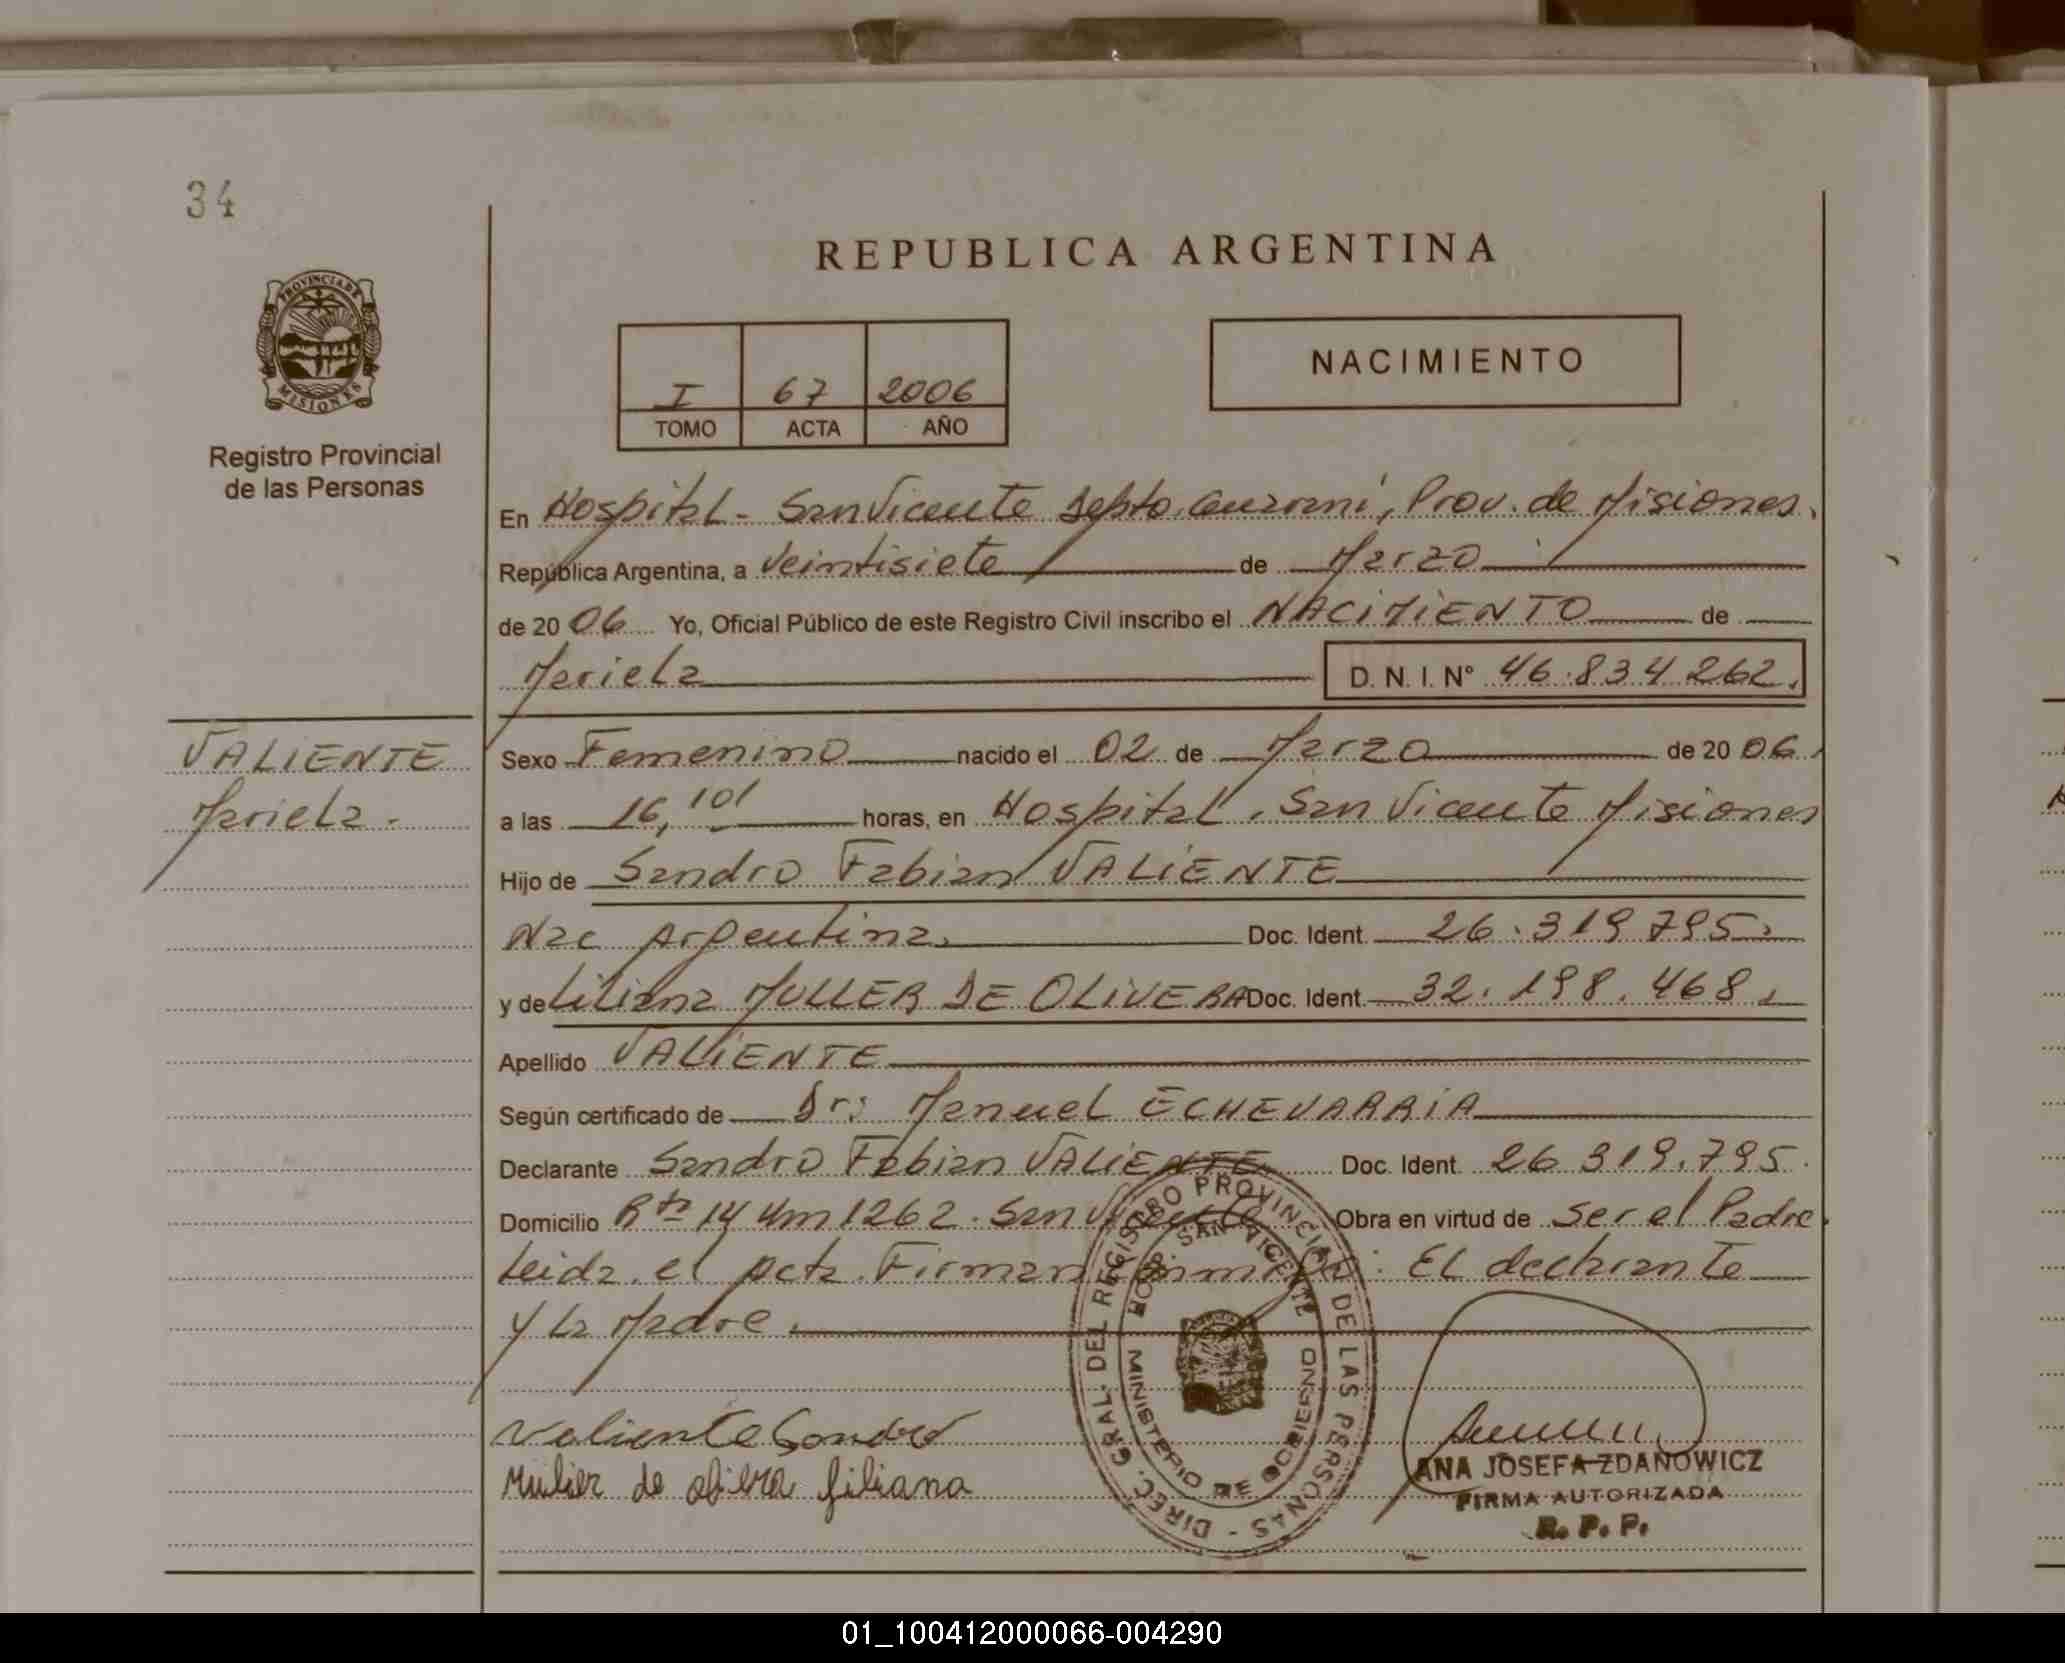 34
REPUBLICA ARGENTINA
PROVINCIA DE
MISIONES
Registro Provincial
de las Personas
I 67 2006
TOMO ACTA AÑO
NACIMIENTO
En Hospital - San Vicente Depto. Guaraní, Prov. de Misiones.
República Argentina, a Veintisiete de Marzo
de 2006 Yo, Oficial Público de este Registro Civil inscribo el NACIMIENTO de
Mariela D. N. I. Nº 46.834.262.
VALIENTE
Mariela.
Sexo Femenino nacido el 02 de Marzo de 2006.
a las 16,10' horas, en Hospital. San Vicente Misiones
Hijo de Sandro Fabian VALIENTE
Nac Argentina. Doc. Ident. 26.319.795.
y de Liliana MULLER DE OLIVERA Doc. Ident. 32.198.468.
Apellido VALIENTE
Según certificado de Dr: Manuel ECHEVARRIA
Declarante Sandro Fabian VALIENTE Doc. Ident. 26.319.795.
Domicilio Rta 14 Km 1262. San Vicente Obra en virtud de Ser el Padre.
Leida el Acta. Firman conmigo: El declarante
y la Madre.
DIREC. GRAL. DEL REGISTRO PROVINCIAL DE LAS PERSONAS -
HOSP. SAN VICENTE
MINISTERIO DE GOBIERNO
Valiente Sandro
Muller de olivera liliana
ANA JOSEFA ZDANOWICZ
FIRMA AUTORIZADA
R. P. P.
01_100412000066-004290